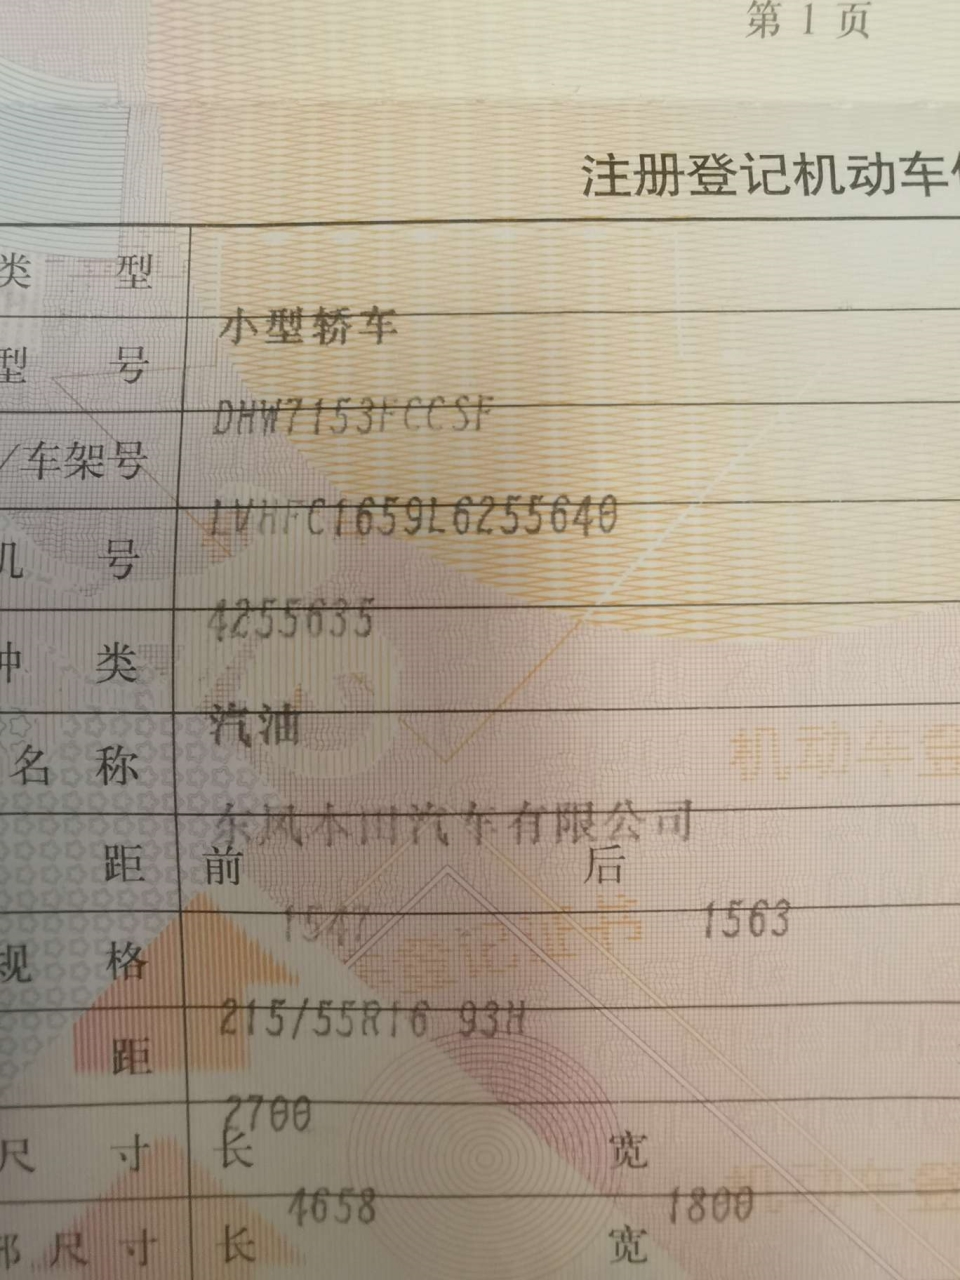 第 1 页
注册登记机动车
类 型
小型轿车
型 号
DHW7153FCCSF
/车架号
LVHFC1659L6255640
机 号
4255635
种 类
汽油
名 称
东风本田汽车有限公司
距 前 后
1547 1563
规 格
215/55R16 93H
距
2700
尺 寸 长 宽
4658 1800
部 尺 寸 长 宽
机动车登
登记证书
机动车登